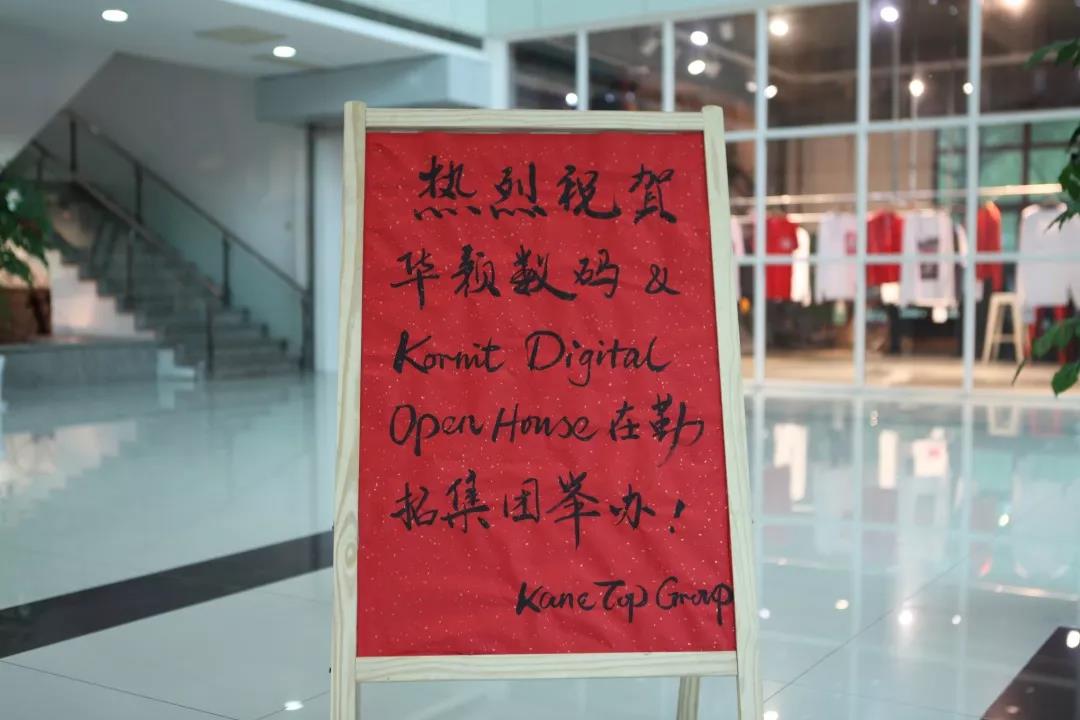 热烈祝贺
华颖数码 &
Kornit Digital
Open House 在勤
招集团举办!
Kane Top Group